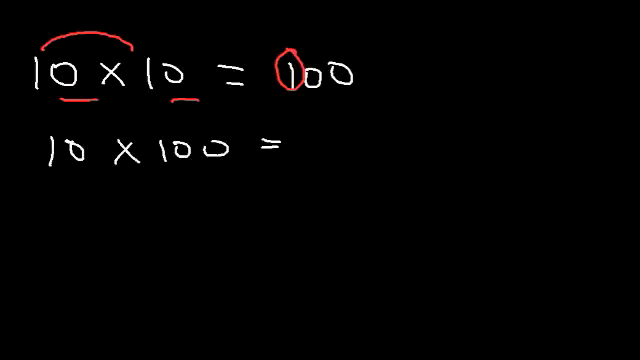 10 × 10 = 100
10 × 100 =